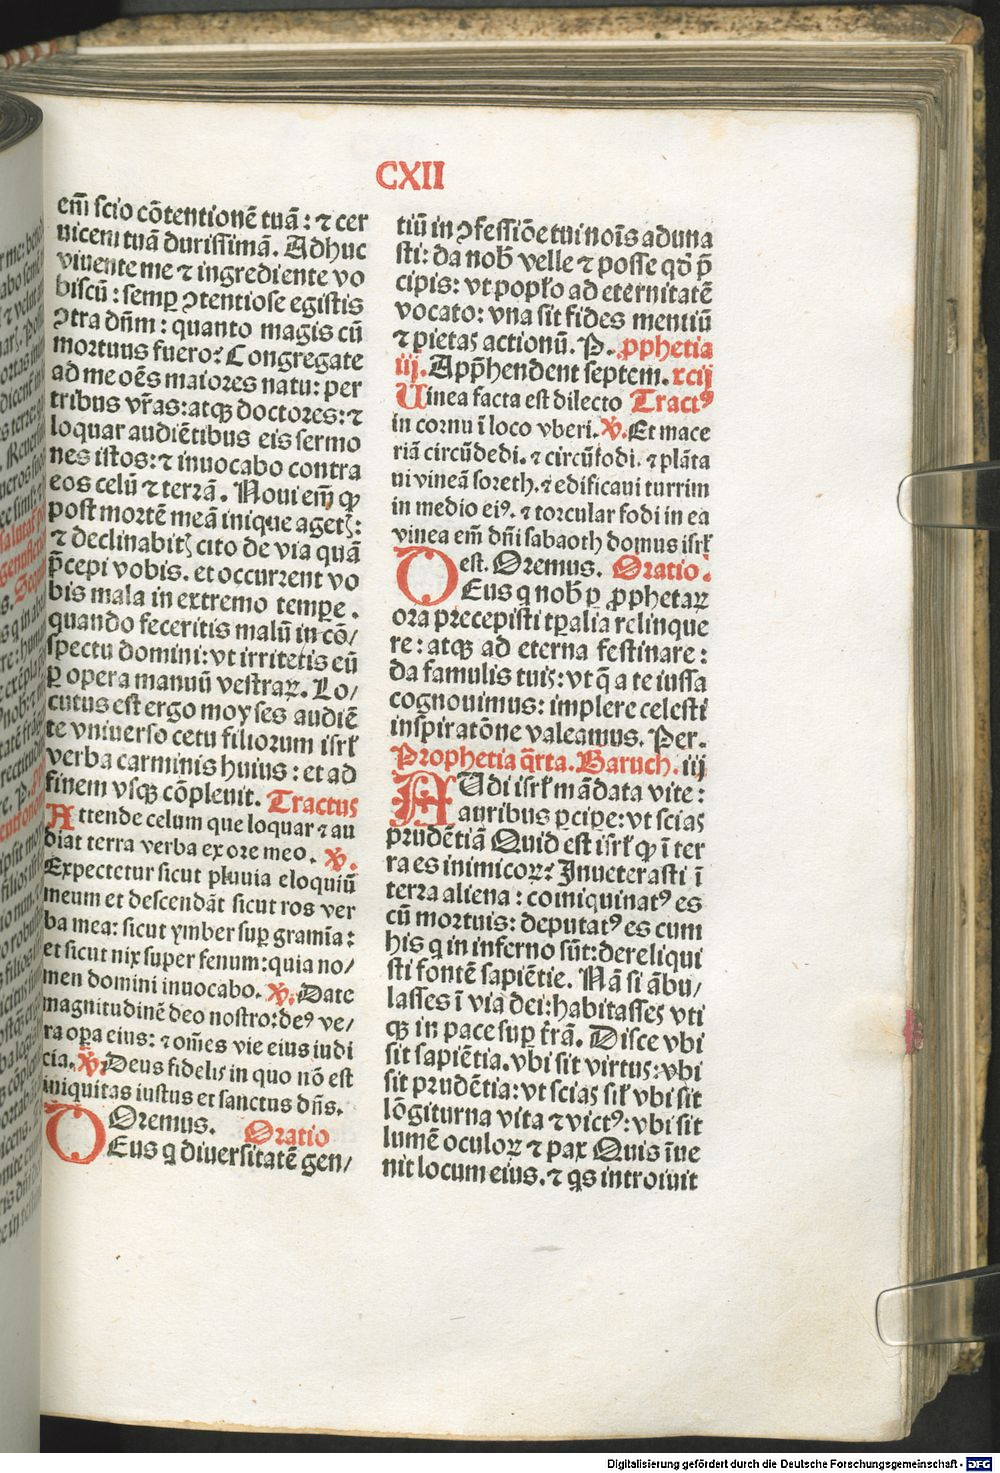 CXII
em̃ scio cõtentionẽ tuã : ⁊ cer
uicem tuã durissimã. Adhuc
viuente me ⁊ ingrediente vo
biscũ : semꝑ ꝯtentiose egistis
ꝯtra dñm : quanto magis cũ
mortuus fuero? Congregate
ad me oẽs maiores natu : per
tribus vr̃as : atqꝫ doctores : ⁊
loquar audiẽtibus eis sermo
nes istos : ⁊ inuocabo contra
eos celũ ⁊ terrã. Noui em̃ ꝙ
post mortẽ meã inique agetꝭ :
⁊ declinabitꝭ cito de via quã
p̃cepi vobis. et occurrent vo
bis mala in extremo tempe .
quando feceritis malũ in cõ/
spectu domini : vt irritetis eũ
ꝑ opera manuũ vestraꝝ. Lo/
cutus est ergo moyses audiẽ
te vniuerso cetu filiorum isrł
verba carminis huius : et ad
finem vsqꝫ cõpleuit. Tractus
Attende celum que loquar ⁊ au
diat terra verba ex ore meo. ℣.
Expectetur sicut pluuia eloquiũ
meum et descendãt sicut ros ver
ba mea : sicut ymber suꝑ gramĩa :
et sicut nix super fenum : quia no/
men domini inuocabo. ℣. Date
magnitudinẽ deo nostro : deꝰ ve/
ra oꝑa eius : ⁊ om̃es vie eius iudi
cia. ℣. Deus fidelis in quo nõ est
iniquitas iustus et sanctus dñs.
Oremus. Oratio
DEus q diuersitatẽ gen/
tiũ in ꝯfessiõe tui noĩs aduna
sti : da nob̃ velle ⁊ posse qđ p̃
cipis : vt popło ad eternitatẽ
vocato : vna sit fides mentiũ
⁊ pietas actionũ. P. ꝓphetia
iij. App̃hendent septem. xcij
Uinea facta est dilecto Tractꝰ
in cornu ĩ loco vberi. ℣. Et mace
riã circũdedi. ⁊ circũfodi. ⁊ plãta
ui vineã soreth. ⁊ edificaui turrim
in medio eiꝰ. ⁊ torcular fodi in ea
vinea em̃ dñi sabaoth domus isrł
est. Oremus. Oratio.
DEus q nob̃ ꝑ ꝓphetaꝝ
ora precepisti tꝑalia relinque
re : atqꝫ ad eterna festinare :
da famulis tuis : vt q̃ a te iussa
cognouimus : implere celesti
inspiratõne valeamus. Per.
Prophetia q̃rta. Baruch. iij
AUdi isrł mãdata vite :
auribus ꝑcipe : vt scias
prudẽtiã Quid est isrł ꝙ ĩ ter
ra es inimicoꝝ? Inueterasti ĩ
terra aliena : coinquinatꝰ es
cũ mortuis : deputatꝰ es cum
his q in inferno sũt : dereliqui
sti fontẽ sapiẽtie. Nã si ãbu/
lasses ĩ via dei : habitasses vti
qꝫ in pace suꝑ tr̃ã. Disce vbi
sit sapiẽtia. vbi sit virtus : vbi
sit prudẽtia : vt scias sił vbi sit
lõgiturna vita ⁊ victꝰ : vbi sit
lumẽ oculoꝝ ⁊ pax Quis ĩue
nit locum eius. ⁊ qs introiuit
Digitalisierung gefördert durch die Deutsche Forschungsgemeinschaft - DFG